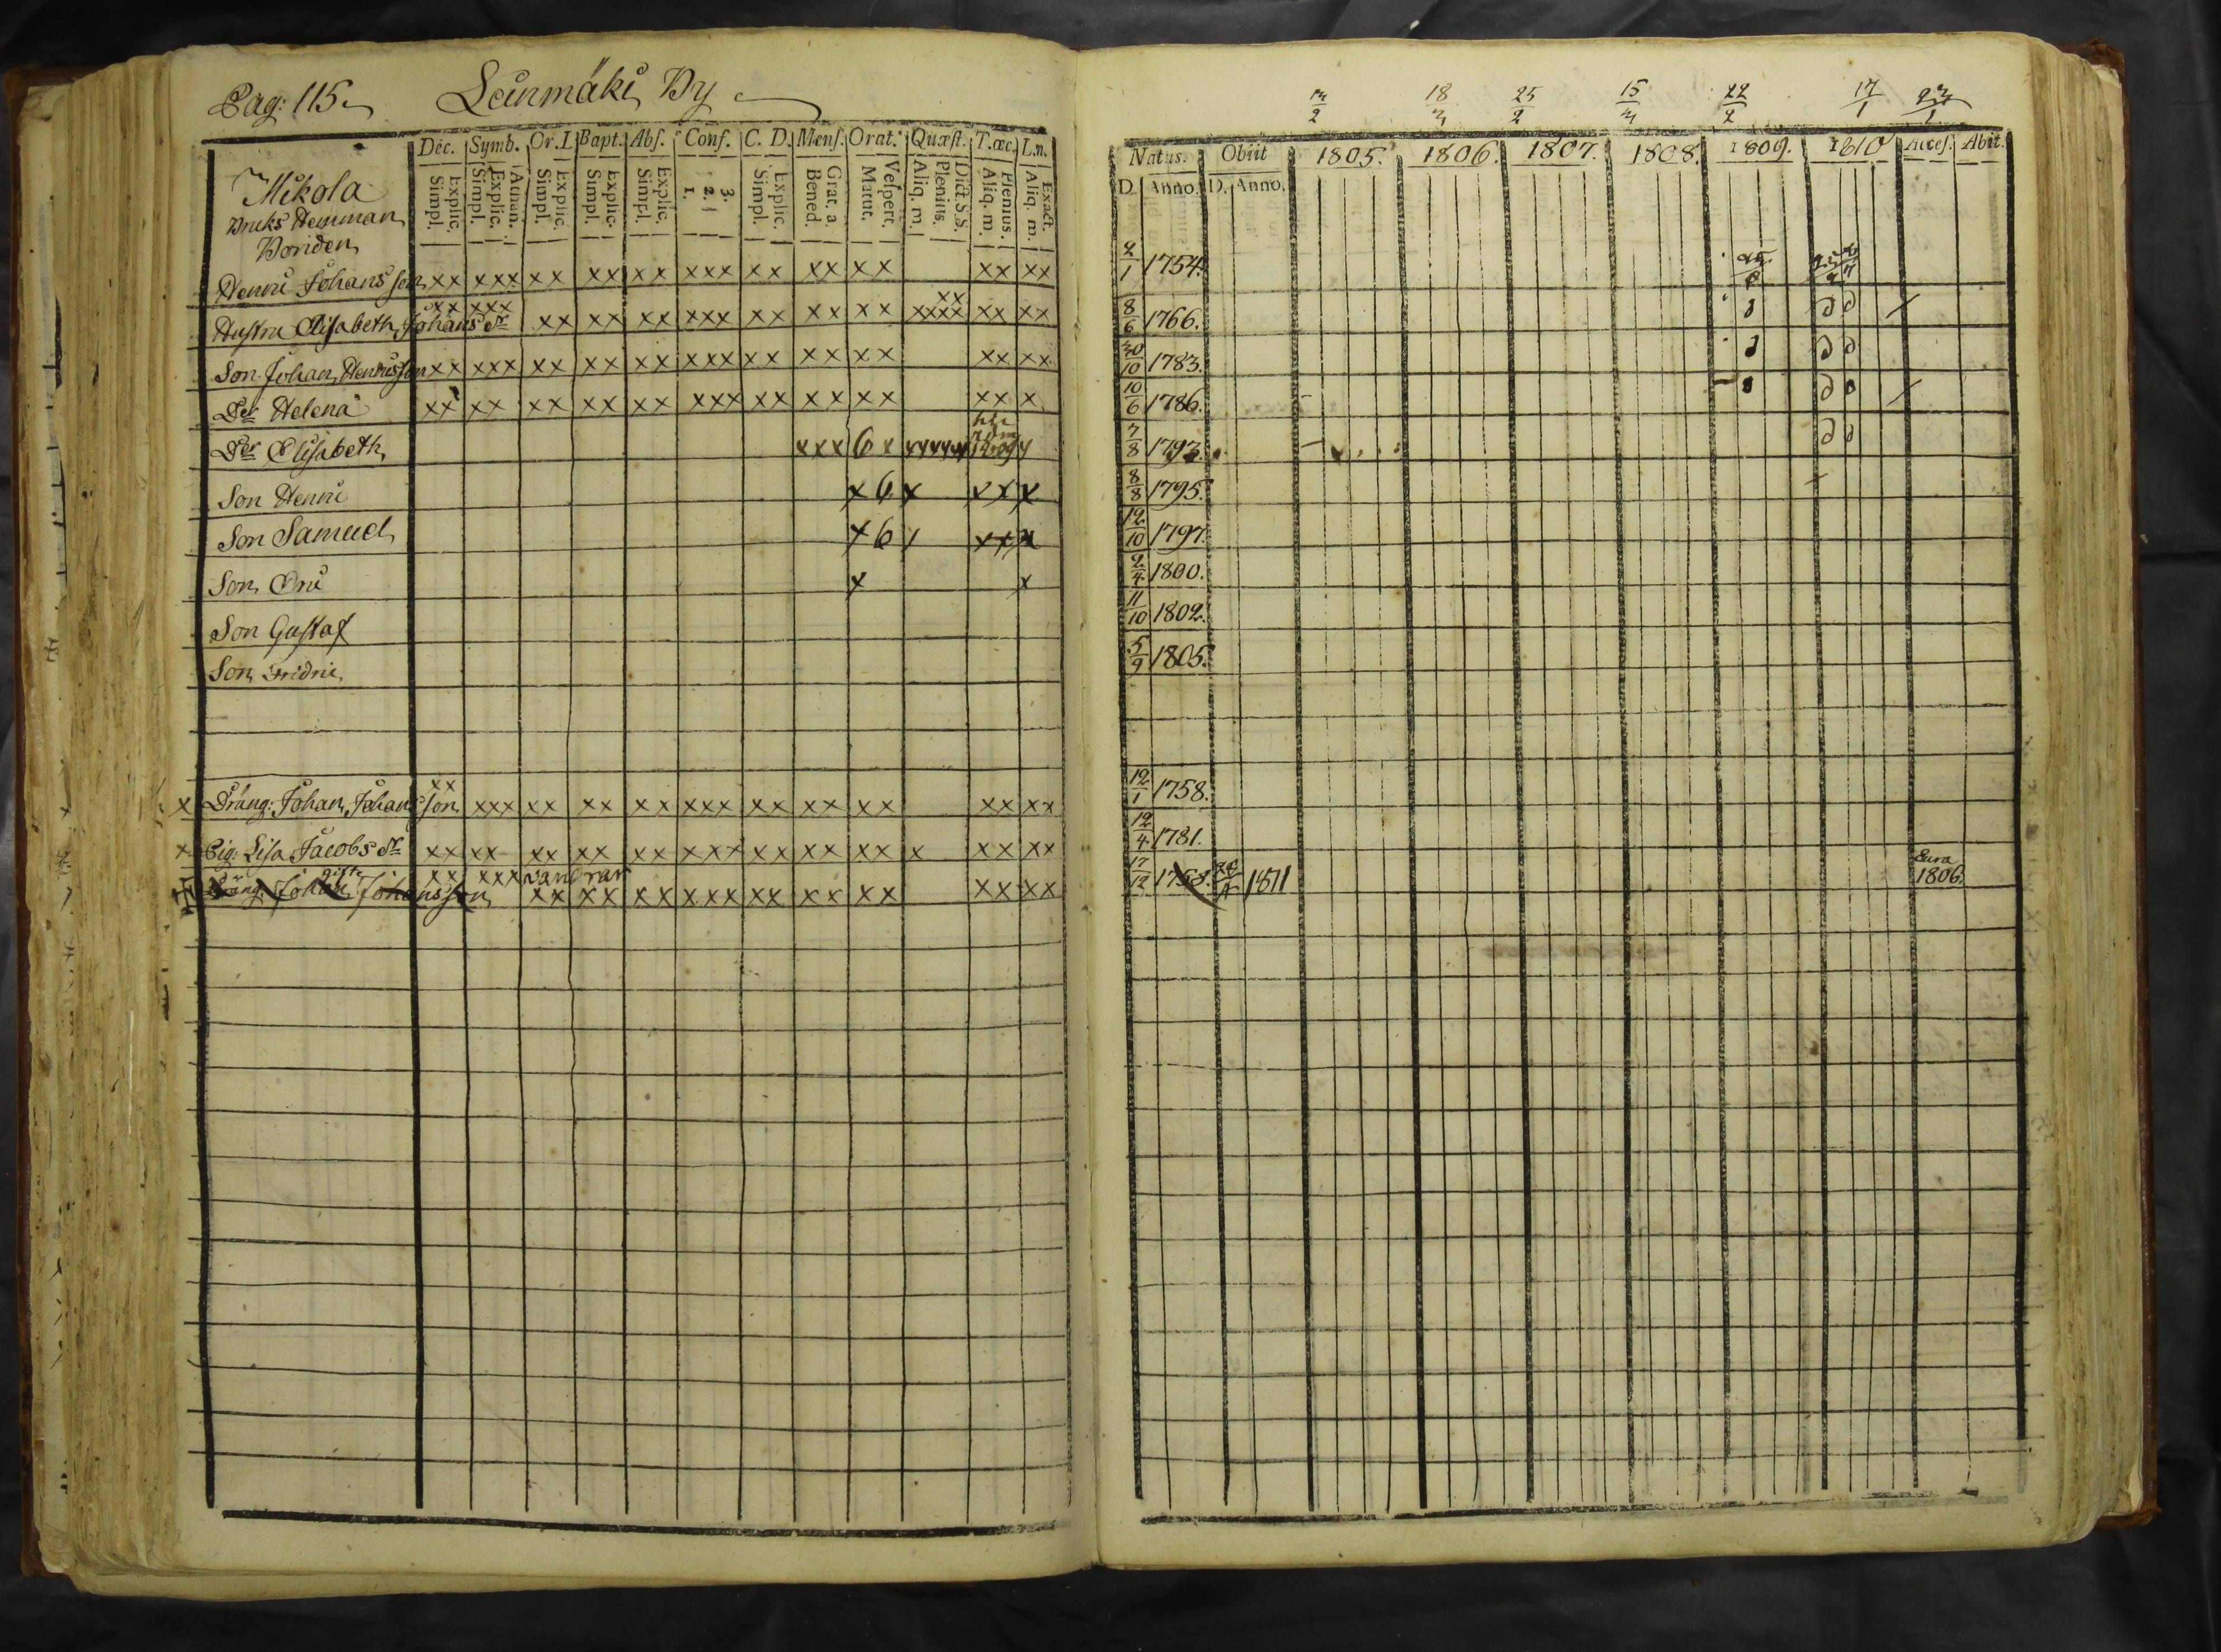 Pag: 115.
Leinmäki By
Dec. Symb. Or.D. Bapt. Abs. Conf. C. D. Menſ. Orat. Quæſt. T.œc. L.n.
Explic. Simpl. Athan. Explic. Simpl. Explic. Simpl. Explic. Simpl. Explic. Simpl. 3. 2. 1. Explic. Simpl. Grat. a. Bened. Veſpert. Matut. Dict. S.S. Plenius. Aliq. m. Plenius. Aliq. m. Exact. Aliq. m.
Mikola
Bruks Hemman
Bonden
Henric Johansson xx xxx xx xx xx xxx xx xx xx xx xx
xx xxx
Hustru Elisabeth Johans dr xx xx xx xxx xx xx xx xxxx xx xx xx
Son Johan Henricsson xx xxx xx xx xx xxx xx xx xx xx xx
Dr Helena xx xx xx xx xx xxx xx xx xx xx x
Dr Elisabeth xxx 6 x 1809
Son Henric x 6 x xxx x
Son Samuel x 6 xxx x
Son Eric x x
Son Gustaf
Son Fridric
xx
x Dräng: Johan Johansson xxx xx xx xx xxx xx xx xx xx xx
x Pig: Lisa Jacobs dr xx xx xx xx xx xxx xx xx xx x xx xx
xx xxx
Dräng: Johan Johansson xx xx xx xxx xx xx xx xx xx
18 25 15 22 17
2 2 2 1
Natus. Obiit 1805. 1806. 1807. 1808. 1809. 1810 Acceſ. Abit.
D. Anno. D. Anno.
2/1 1754.
8/6 1766.
30/10 1783.
10/6 1786.
7/8 1793.
8/8 1795.
12/10 1797.
2/4 1800.
11/10 1802.
5/9 1805.
12/1 1758.
12/4 1781.
17/12 1758. 1811 Eura
1806.